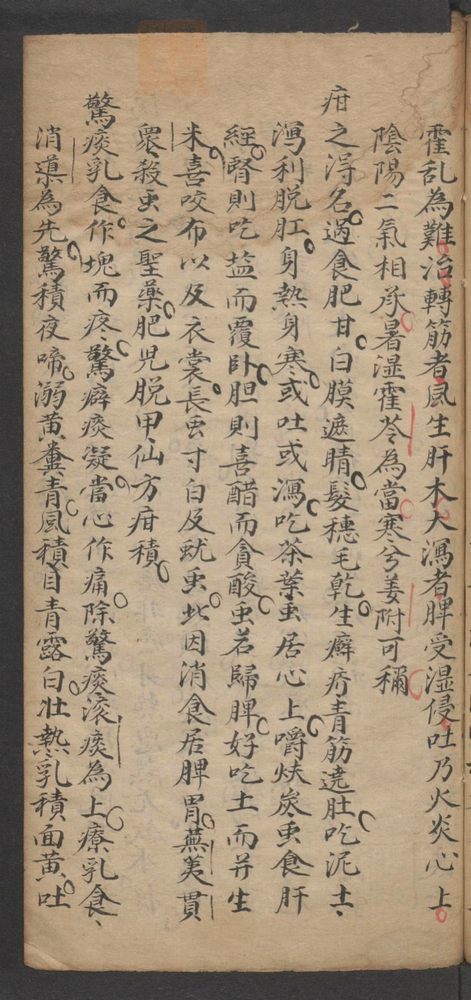 霍乱為難治轉筋者風生肝木大瀉者脾受湿侵吐乃火炎心上
陰陽二氣相承暑湿霍苓為當寒兮姜附可稱
疳之得名過食肥甘白膜遮睛髮穗毛乾生癬疥青筋遶肚吃泥土
瀉利脱肛身熱身寒或吐或瀉吃茶葉虫居心上嚼炭虫食肝
經腎則吃盐而覆卧胆則喜醋而貪酸虫若歸脾好吃土而并生
米喜咬布以及衣裳長虫寸白及蚘虫此因消食居脾胃蕪荑貫
衆殺虫之聖藥肥児脱甲仙方疳積
驚痰乳食作塊而疼驚癖痰凝當心作痛除驚痰滚痰為上療乳食
消導為先驚積夜啼溺黄糞青風積目青露白壮熱乳積面黄吐